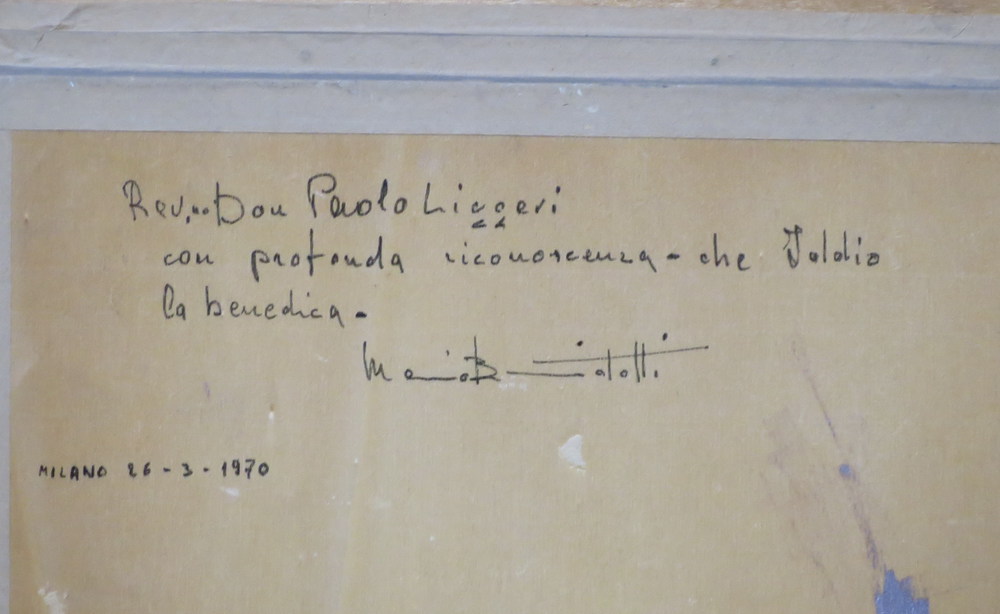 Rev.do Don Paolo Liggeri
con profonda riconoscenza - che Iddio
la benedica -
MILANO 26 - 3 - 1970